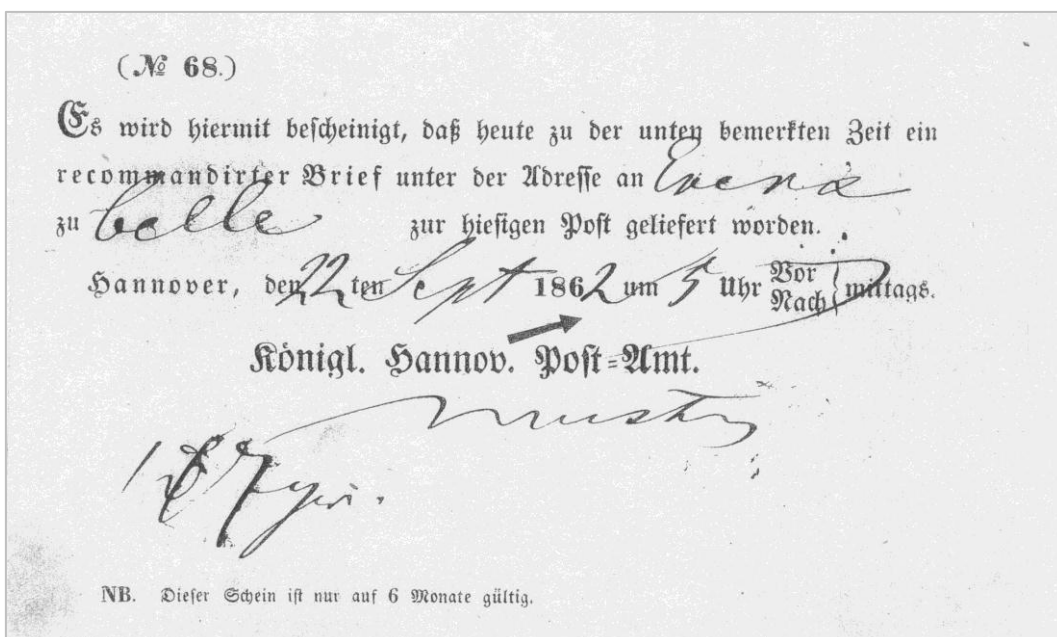 (№ 68.)
Es wird hiermit bescheinigt, daß heute zu der unten bemerkten Zeit ein
recommandirter Brief unter der Adresse an
zu Celle zur hiesigen Post geliefert worden.
Hannover, den 22 ten Sept 1862 um 5 Uhr Vor Nach mittags.
Königl. Hannov. Post-Amt.
NB. Dieser Schein ist nur auf 6 Monate gültig.